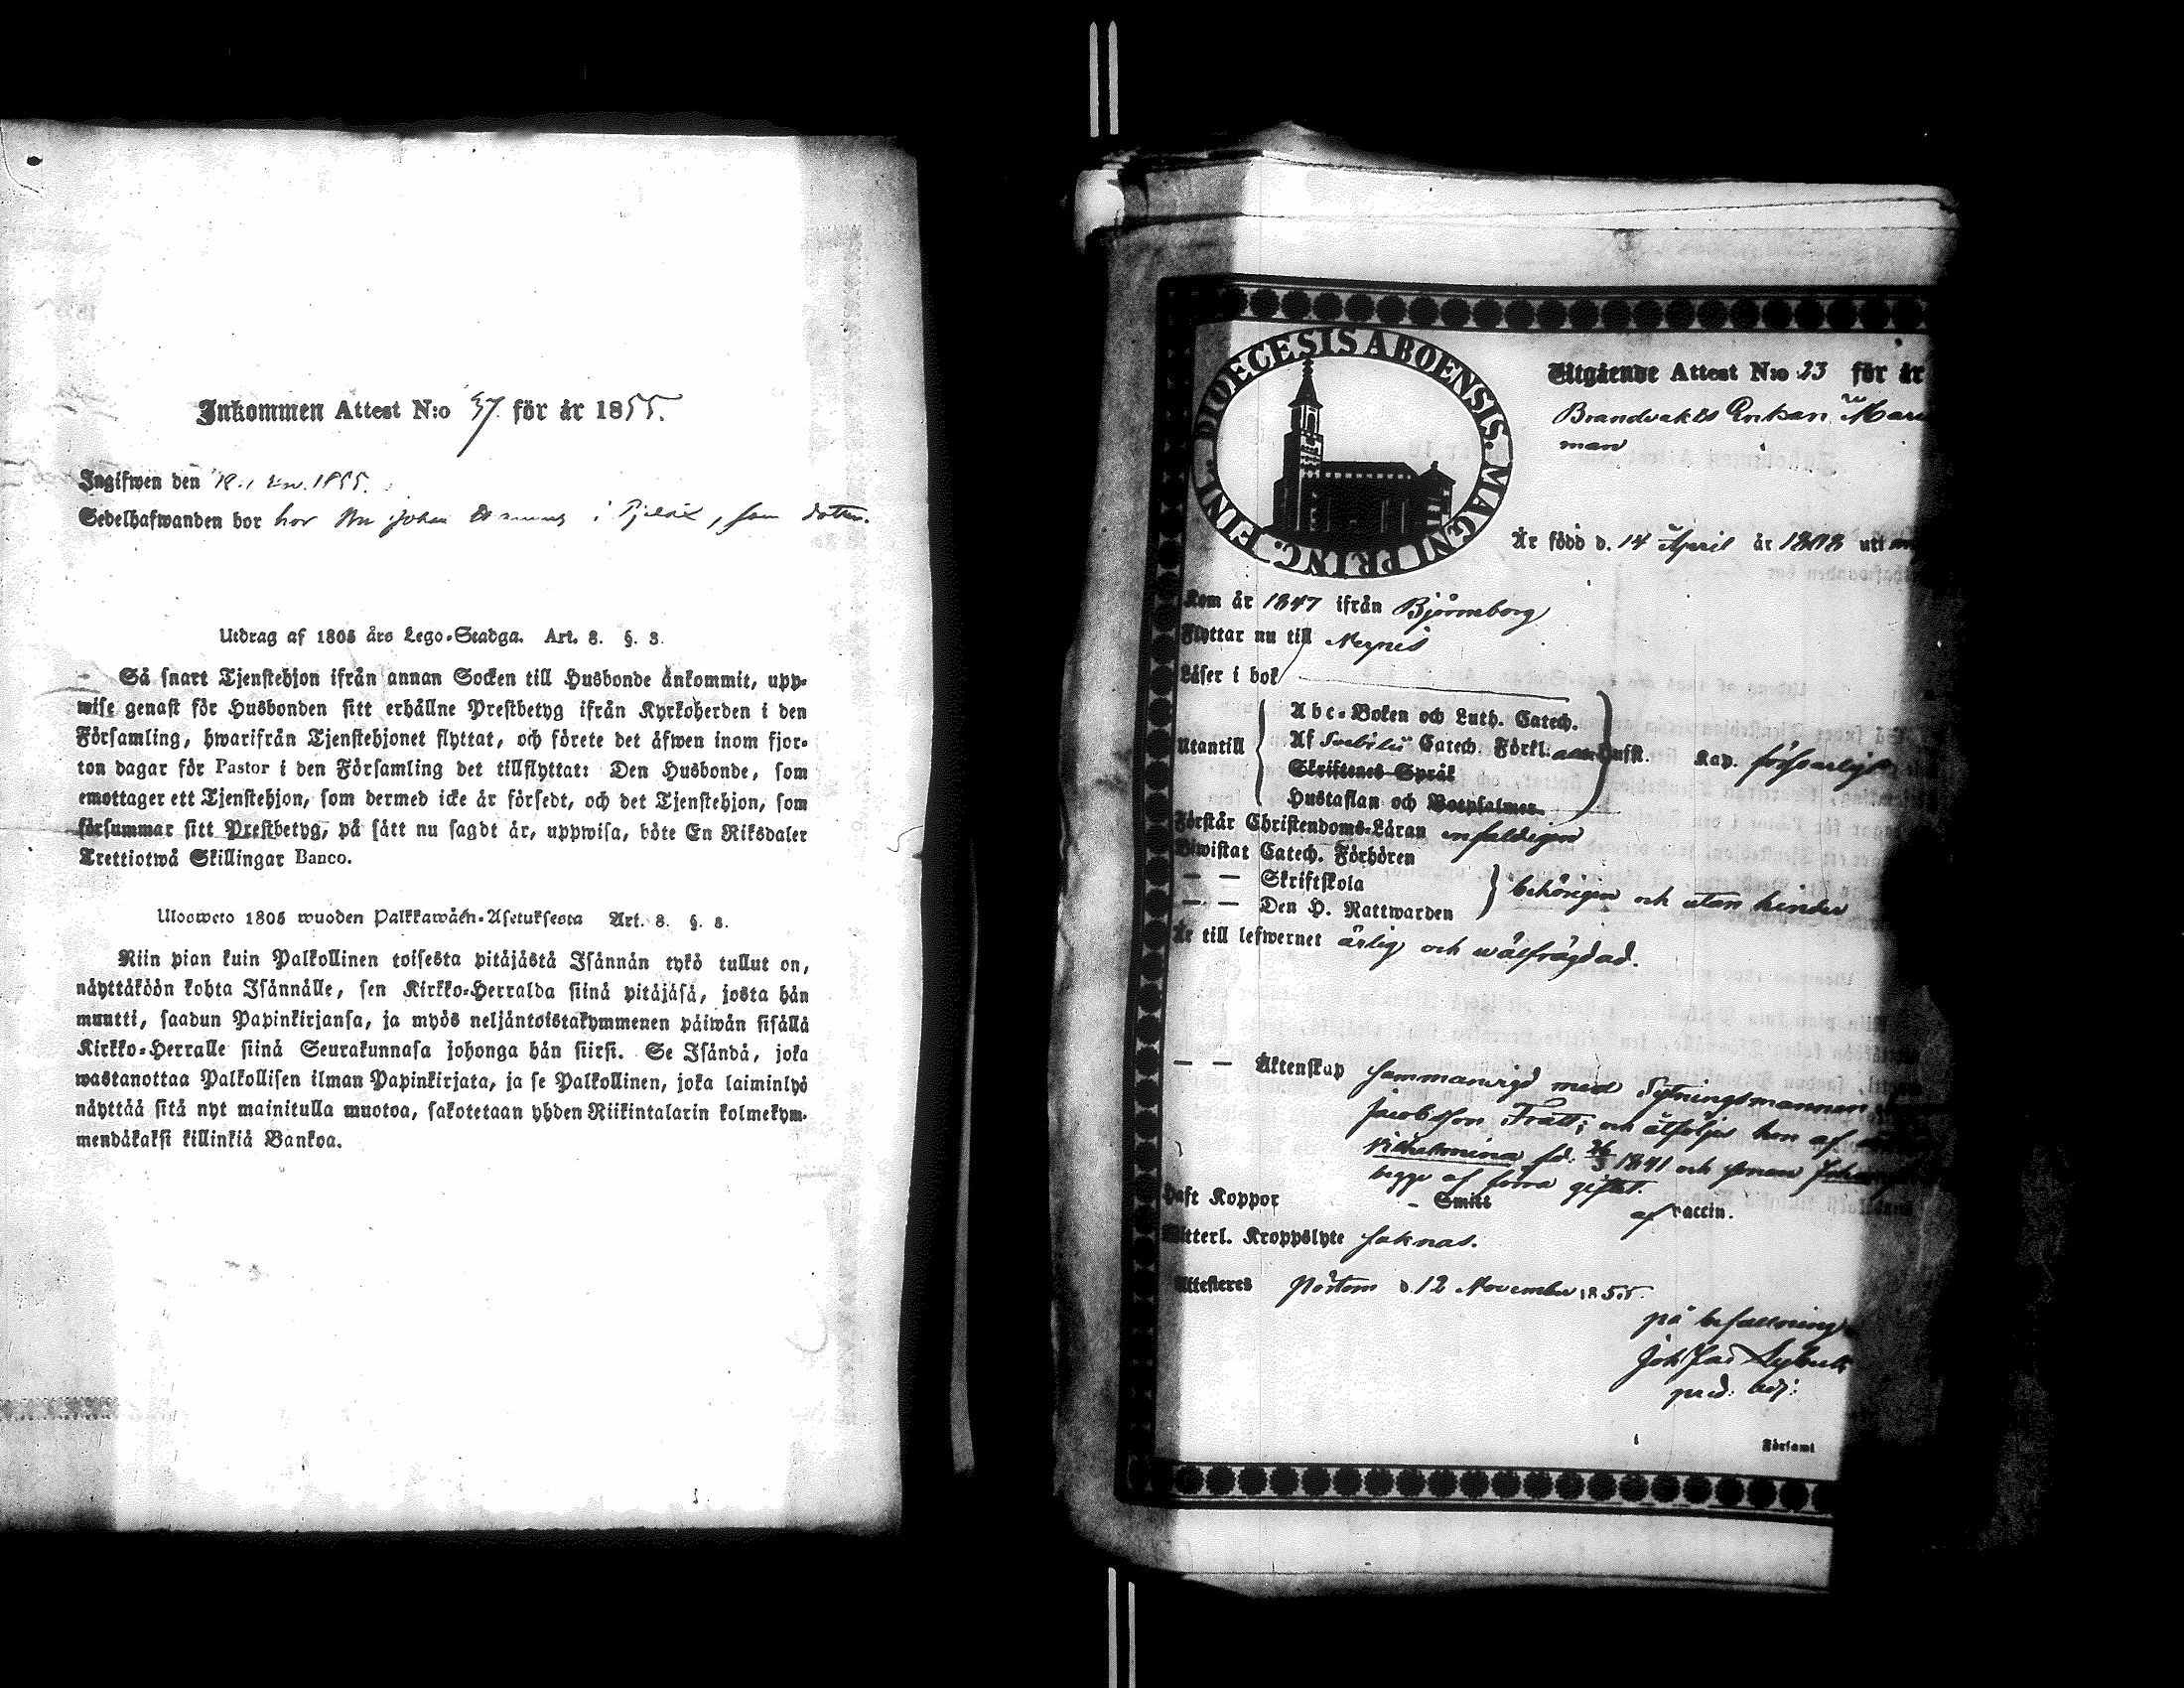 Inkommen Attest N:o 37. för år 1855.
Ingifwen den 18 1855.
Sedelhafwanden bor hos Johan i , som dotter.
Utdrag af 1805 års Lego-Stadga. Art. 8. §. 3.
Så snart Tjenstehjon ifrån annan Socken till Husbonde ånkommit, upp-
wise genast för Husbonden sitt erhållne Prestbetyg ifrån Kyrkoherden i den
Församling, hwarifrån Tjenstehjonet flyttat, och förete det åfwen inom fjor-
ton dagar för Pastor i den Församling det tillflyttat: Den Husbonde, som
emottager ett Tjenstehjon, som dermed icke är försedt, och det Tjenstehjon, som
försummar sitt Prestbetyg, på sätt nu sagdt är, uppwisa, böte En Riksdaler
Trettiotwå Skillingar Banco.
Ulosweto 1805 wuoden Palkkawäen-Asetuksesta Art. 8. §. 3.
Niin pian kuin Palkollinen toisesta pitäjästä Isännän tykö tullut on,
näyttäköön kohta Isännälle, sen Kirkko-Herralda siinä pitäjäsä, josta hän
muutti, saadun Papinkirjansa, ja myös neljäntoistakymmenen päiwän sisällä
Kirkko-Herralle siinä Seurakunnasa johonga hän siirsi. Se Isändä, joka
wastanottaa Palkollisen ilman Papinkirjata, ja se Palkollinen, joka laiminlyö
näyttää sitä nyt mainitulla muotoa, sakotetaan yhden Riikintalarin kolmekym-
mendäkaksi killinkiä Bankoa.
DIOECESIS ABOENSIS. MAGNI PRINC. FINL.
Utgående Attest N:o 23 för år
Brandvakts Enkan
man
Är född d. 14 April år 1808 uti
Kom år 1847 ifrån Björneborg
Flyttar nu till Nerpes
Läser i bok
Utantill
Abc-Boken och Luth. Catech.
Af Svebilii Catech. Förkl. Kap. försvarligt
Skriftenes Språk
Hustaflan och Botpsalmer.
Förstår Christendoms-Läran enfaldigen
Biwistat Catech. Förhören
— — Skriftskola
— — Den H. Nattwarden
behörigen och utan hinder
Är till lefwernet ärlig och wälfrägdad.
— — Äktenskap sammanvigd med Sytningsmannen
Jacobsson Fratt; och åtföljes hon af
Wilhelmina fd. 26/3 1841 och sonen Johan
begge af förra giftet.
Haft Koppor - Smitt af vaccin.
Witterl. Kroppslyte saknas.
Attesteras Pörtom d. 12 November 1855.
på befallning
pred. adj.
Församl